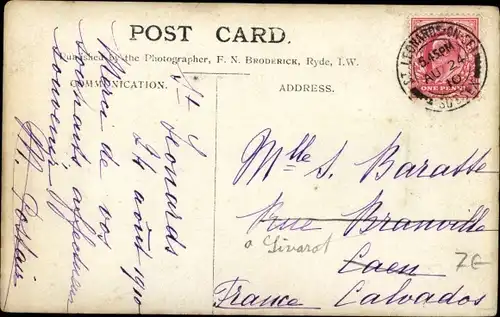 POST CARD.
Published by the Photographer, F. N. BRODERICK, Ryde, I.W.
COMMUNICATION.
ADDRESS.
ST LEONARDS-ON-SEA
5.45PM
AU 24
10
SUSSEX
ONE PENNY
St Leonards
24 août 1910
Merci de vos
souhaits affectueux
souvenir
Mlle S. Baratte
Rue Branville
a Livarot
Caen
France Calvados
7€